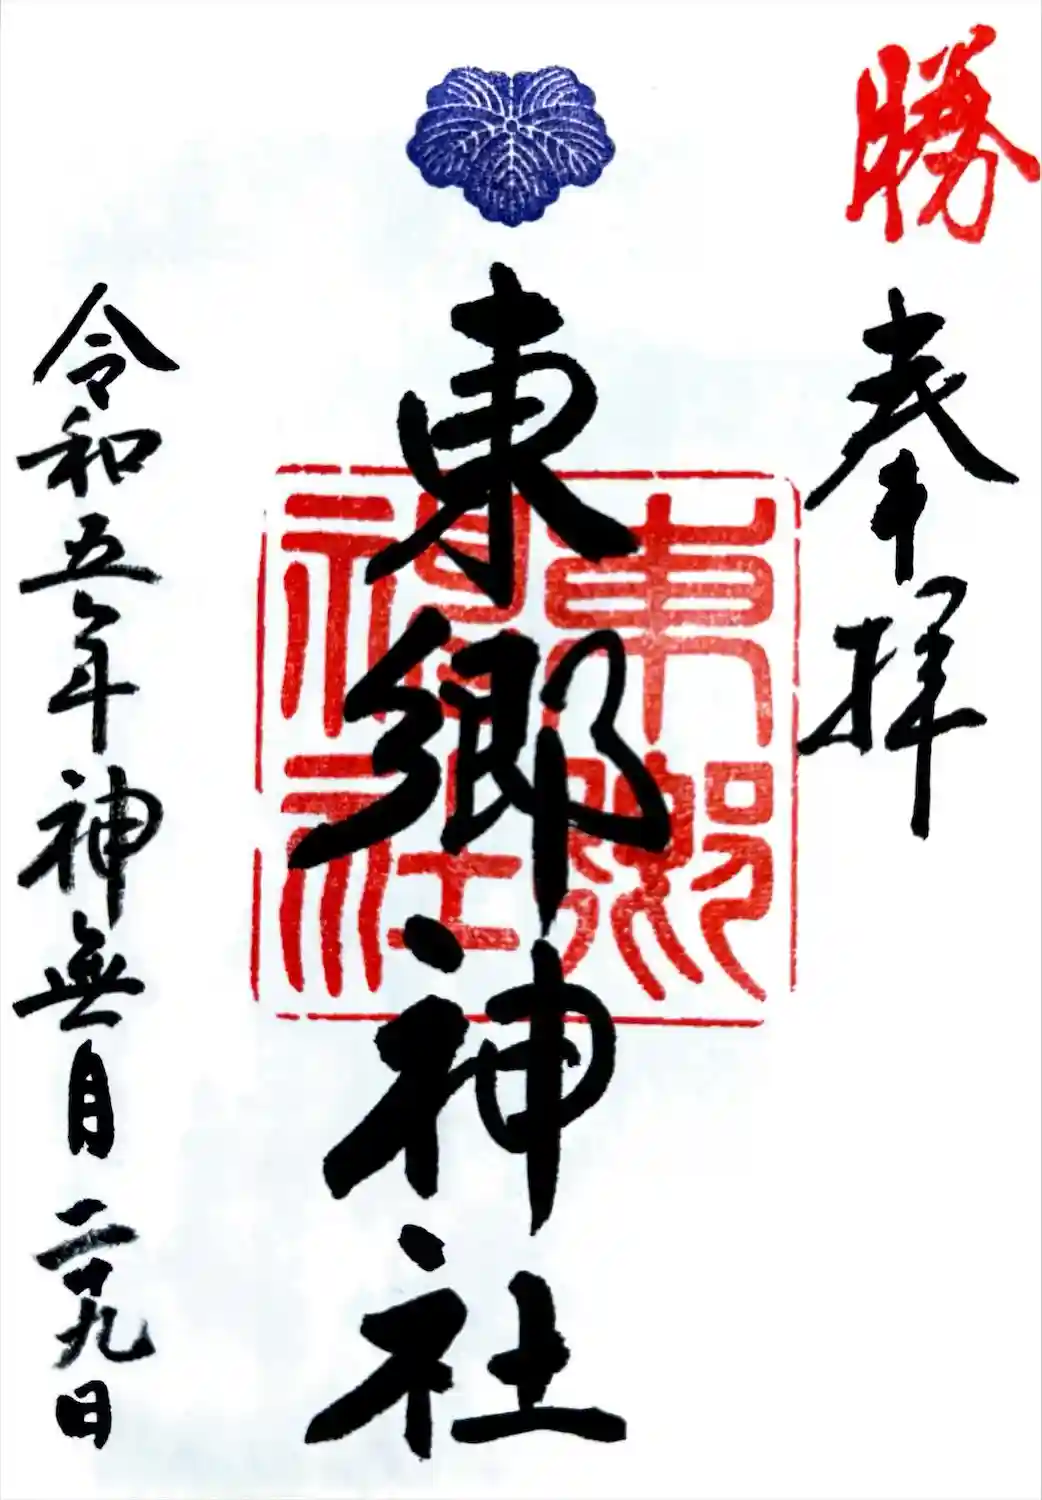 勝
奉拝
東郷神社
東郷
神社
令和五年神無月二十九日